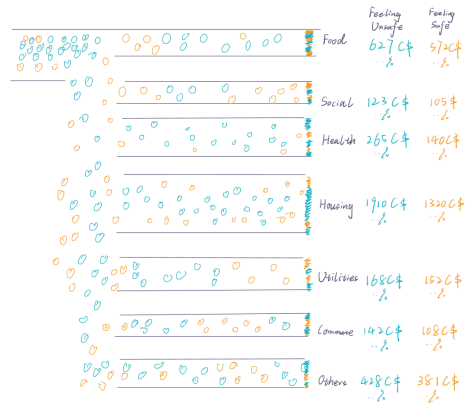 Feeling Unsafe
Feeling Safe
Food 627C$ 572C$
..%
..%
Social 123C$ 105$
..%
..%
Health 265C$ 140C$
..%
..%
Housing 1910C$ 1320C$
..%
..%
Utilities 168C$ 152C$
..%
..%
Commune 142C$ 108C$
..%
..%
Others 428C$ 381C$
..%
..%